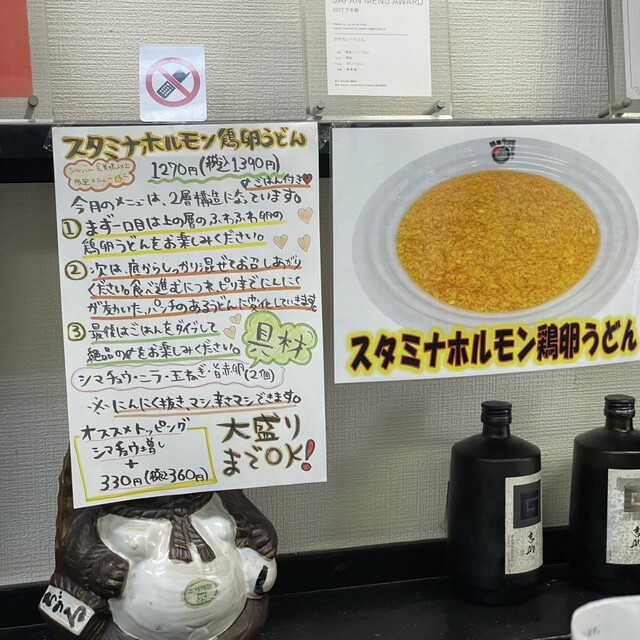 JAPAN MENU AWARD
スタミナホルモン鶏卵うどん
シルバー会員様以上
限定メニュー
1270円(税込1390円)
*ごはん付き
今月のメニューは、2層構造に空っています。
① まず一口目は上の層のふわふわ卵の
鶏卵うどんをお楽しみください。
② 次は、底からしっかり混ぜてお召し上がり
ください。食べ進むにつれ、ピリ辛でにんにく
が効いた、パンチのあるうどんに変化していきます。
③ 最後はごはんをダイブして
絶品の〆をお楽しみください。
具材
シマチョウ・ニラ・玉ねぎ・旨赤卵(2個)
※にんにく抜き、マシ、辛マシできます。
オススメトッピング
シマチョウ増し
+
330円(税込360円)
大盛り
までOK!
スタミナホルモン鶏卵うどん